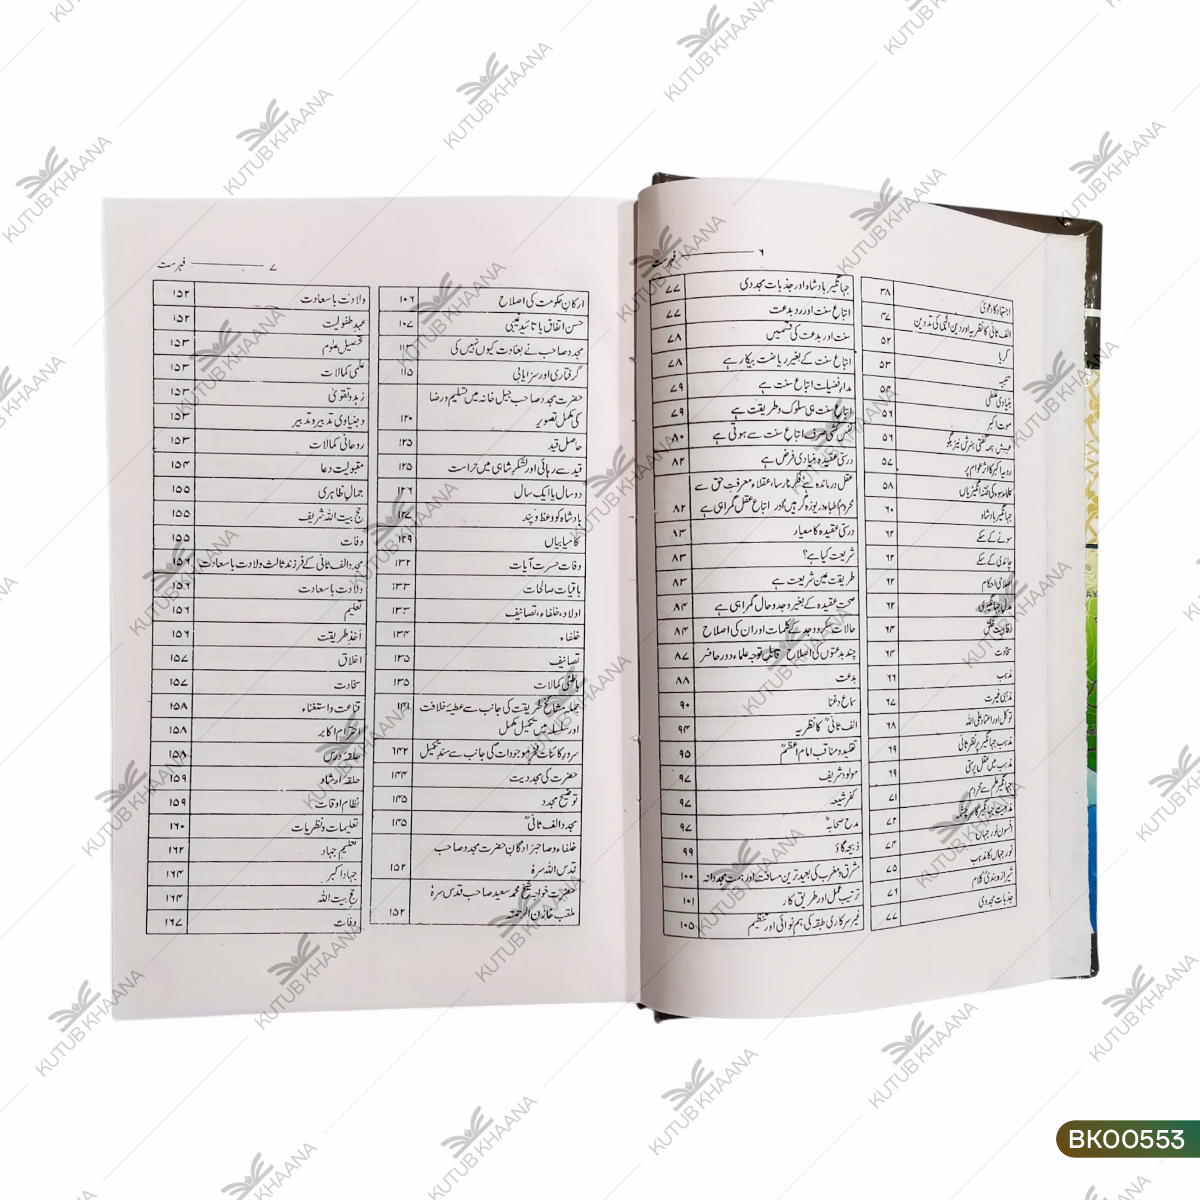 ۶ فہرست
اجتہاد کا دعویٰ ۳۸
الف ثانی کا نظریہ اور دین الٰہی کی تدوین ۴۷
۵۲
۵۳
بنیادی غلطی ۵۴
موت اکبر ۵۶
۵۶
۵۷
۵۸
جہانگیر بادشاہ ۶۰
سونے کے سکے ۶۲
چاندی کے سکے ۶۲
اصلاحی احکام ۶۲
عدل جہانگیری ۶۲
رفاہیت خلق ۶۴
سخاوت ۶۴
مذہب ۶۶
مذہبی غیرت ۶۷
توکل اور اعتماد علی اللہ ۶۸
مذہب جہانگیر پر نظر ثانی ۶۹
مذہب میں عقل پرستی ۶۹
جہانگیر علم سے محروم ۷۱
۷۲
افسون نور جہاں ۷۴
نور جہاں کا مذہب ۷۵
شیرازہ بندئ کلام ۷۶
جذبات مجددی ۷۷
جہانگیر بادشاہ اور جذبات مجددی ۷۷
اتباع سنت اور رد بدعت ۷۷
سنت اور بدعت کی قسمیں ۷۸
اتباع سنت کے بغیر ریاضت بیکار ہے ۷۸
مدار فضیلت اتباع سنت ہے ۷۹
اتباع سنت ہی سلوک و طریقت ہے ۷۹
نفس کشی صرف اتباع سنت سے ہوتی ہے ۸۰
درستی عقیدہ بنیادی فرض ہے ۸۲
عقل درماندہ ہے فکر نارسا، عقلاء معرفت حق سے
محروم اطباء دریوزہ گر ہیں اور اتباع عقل گمراہی ہے ۸۲
درستی عقیدہ کا معیار ۸۳
شریعت کیا ہے؟ ۸۳
طریقت عین شریعت ہے ۸۳
صحت عقیدہ کے بغیر وجد و حال گمراہی ہے ۸۴
حالات سکر و وجد کے کلمات اور ان کی اصلاح ۸۴
چند بدعتوں کی اصلاح قابل توجہ علماء دور حاضر ۸۷
بدعت ۸۸
سماع و غنا ۹۰
الف ثانیؒ کا نظریہ ۹۴
تقلید و مناقب امام اعظمؒ ۹۵
مولود شریف ۹۷
کفر شیعہ ۹۷
مدح صحابہؓ ۹۷
ذبیحہ گاؤ ۹۹
مشرق و مغرب کی بعید ترین مسافت اور ہمت مجددانہ ۱۰۰
ترتیب عمل اور طریق کار ۱۰۱
غیر سرکاری طبقہ کی ہم نوائی اور تنظیم ۱۰۵
۷ فہرست
ارکان حکومت کی اصلاح ۱۰۶
حسن اتفاق یا تائید غیبی ۱۰۷
مجدد صاحب نے بغاوت کیوں نہیں کی ۱۱۳
گرفتاری اور سزایابی ۱۱۵
حضرت مجدد صاحب جیل خانہ میں تسلیم و رضا
کی مکمل تصویر ۱۲۰
حاصل قید ۱۲۵
قید سے رہائی اور لشکر شاہی میں حراست ۱۲۵
دو سال یا ایک سال ۱۲۶
بادشاہ کو وعظ و پند ۱۲۷
کامیابیاں ۱۲۹
وفات حسرت آیات ۱۳۲
باقیات صالحات ۱۳۳
اولاد، خلفاء، تصانیف ۱۳۳
خلفاء ۱۳۴
تصانیف ۱۳۵
باطنی کمالات ۱۳۵
جملہ مشائخ طریقت کی جانب سے عطیۂ خلافت ۱۴۱
اور سلسلہ میں تکمیل مکمل
سرور کائنات فخر موجودات کی جانب سے سند تکمیل ۶۴۲
حضرت کی مجددیت ۱۴۴
توضیح مجدد ۱۴۵
مجدد الف ثانیؒ ۱۴۵
خلفاء و صاحبزادگان حضرت مجدد صاحب
قدس اللہ سرہٗ ۱۵۲
حضرت خواجہ شیخ محمد سعید صاحب قدس سرہٗ
ملقب خازن الرحمۃ ۱۵۲
ولادت با سعادت ۱۵۲
عہد طفولیت ۱۵۲
تحصیل علوم ۱۵۳
علمی کمالات ۱۵۳
زہد و تقویٰ ۱۵۳
دنیاوی تدبیر و تدبر ۱۵۳
روحانی کمالات ۱۵۳
مقبولیت دعا ۱۵۴
جمال ظاہری ۱۵۵
حج بیت اللہ شریف ۱۵۵
وفات ۱۵۵
مجدد الف ثانی کے فرزند ثالث ولادت با سعادت ۱۵۶
ولادت با سعادت ۱۵۶
تعلیم ۱۵۶
اخذ طریقت ۱۵۶
اخلاق ۱۵۷
سخاوت ۱۵۷
قناعت و استغناء ۱۵۸
احترام اکابر ۱۵۸
حلقہ درس ۱۵۸
حلقہ ارشاد ۱۵۹
نظام اوقات ۱۵۹
تعلیمات و نظریات ۱۶۰
تعلیم جہاد ۱۶۲
جہاد اکبر ۱۶۴
حج بیت اللہ ۱۶۴
وفات ۱۶۷
KUTUB KHAANA
BK00553